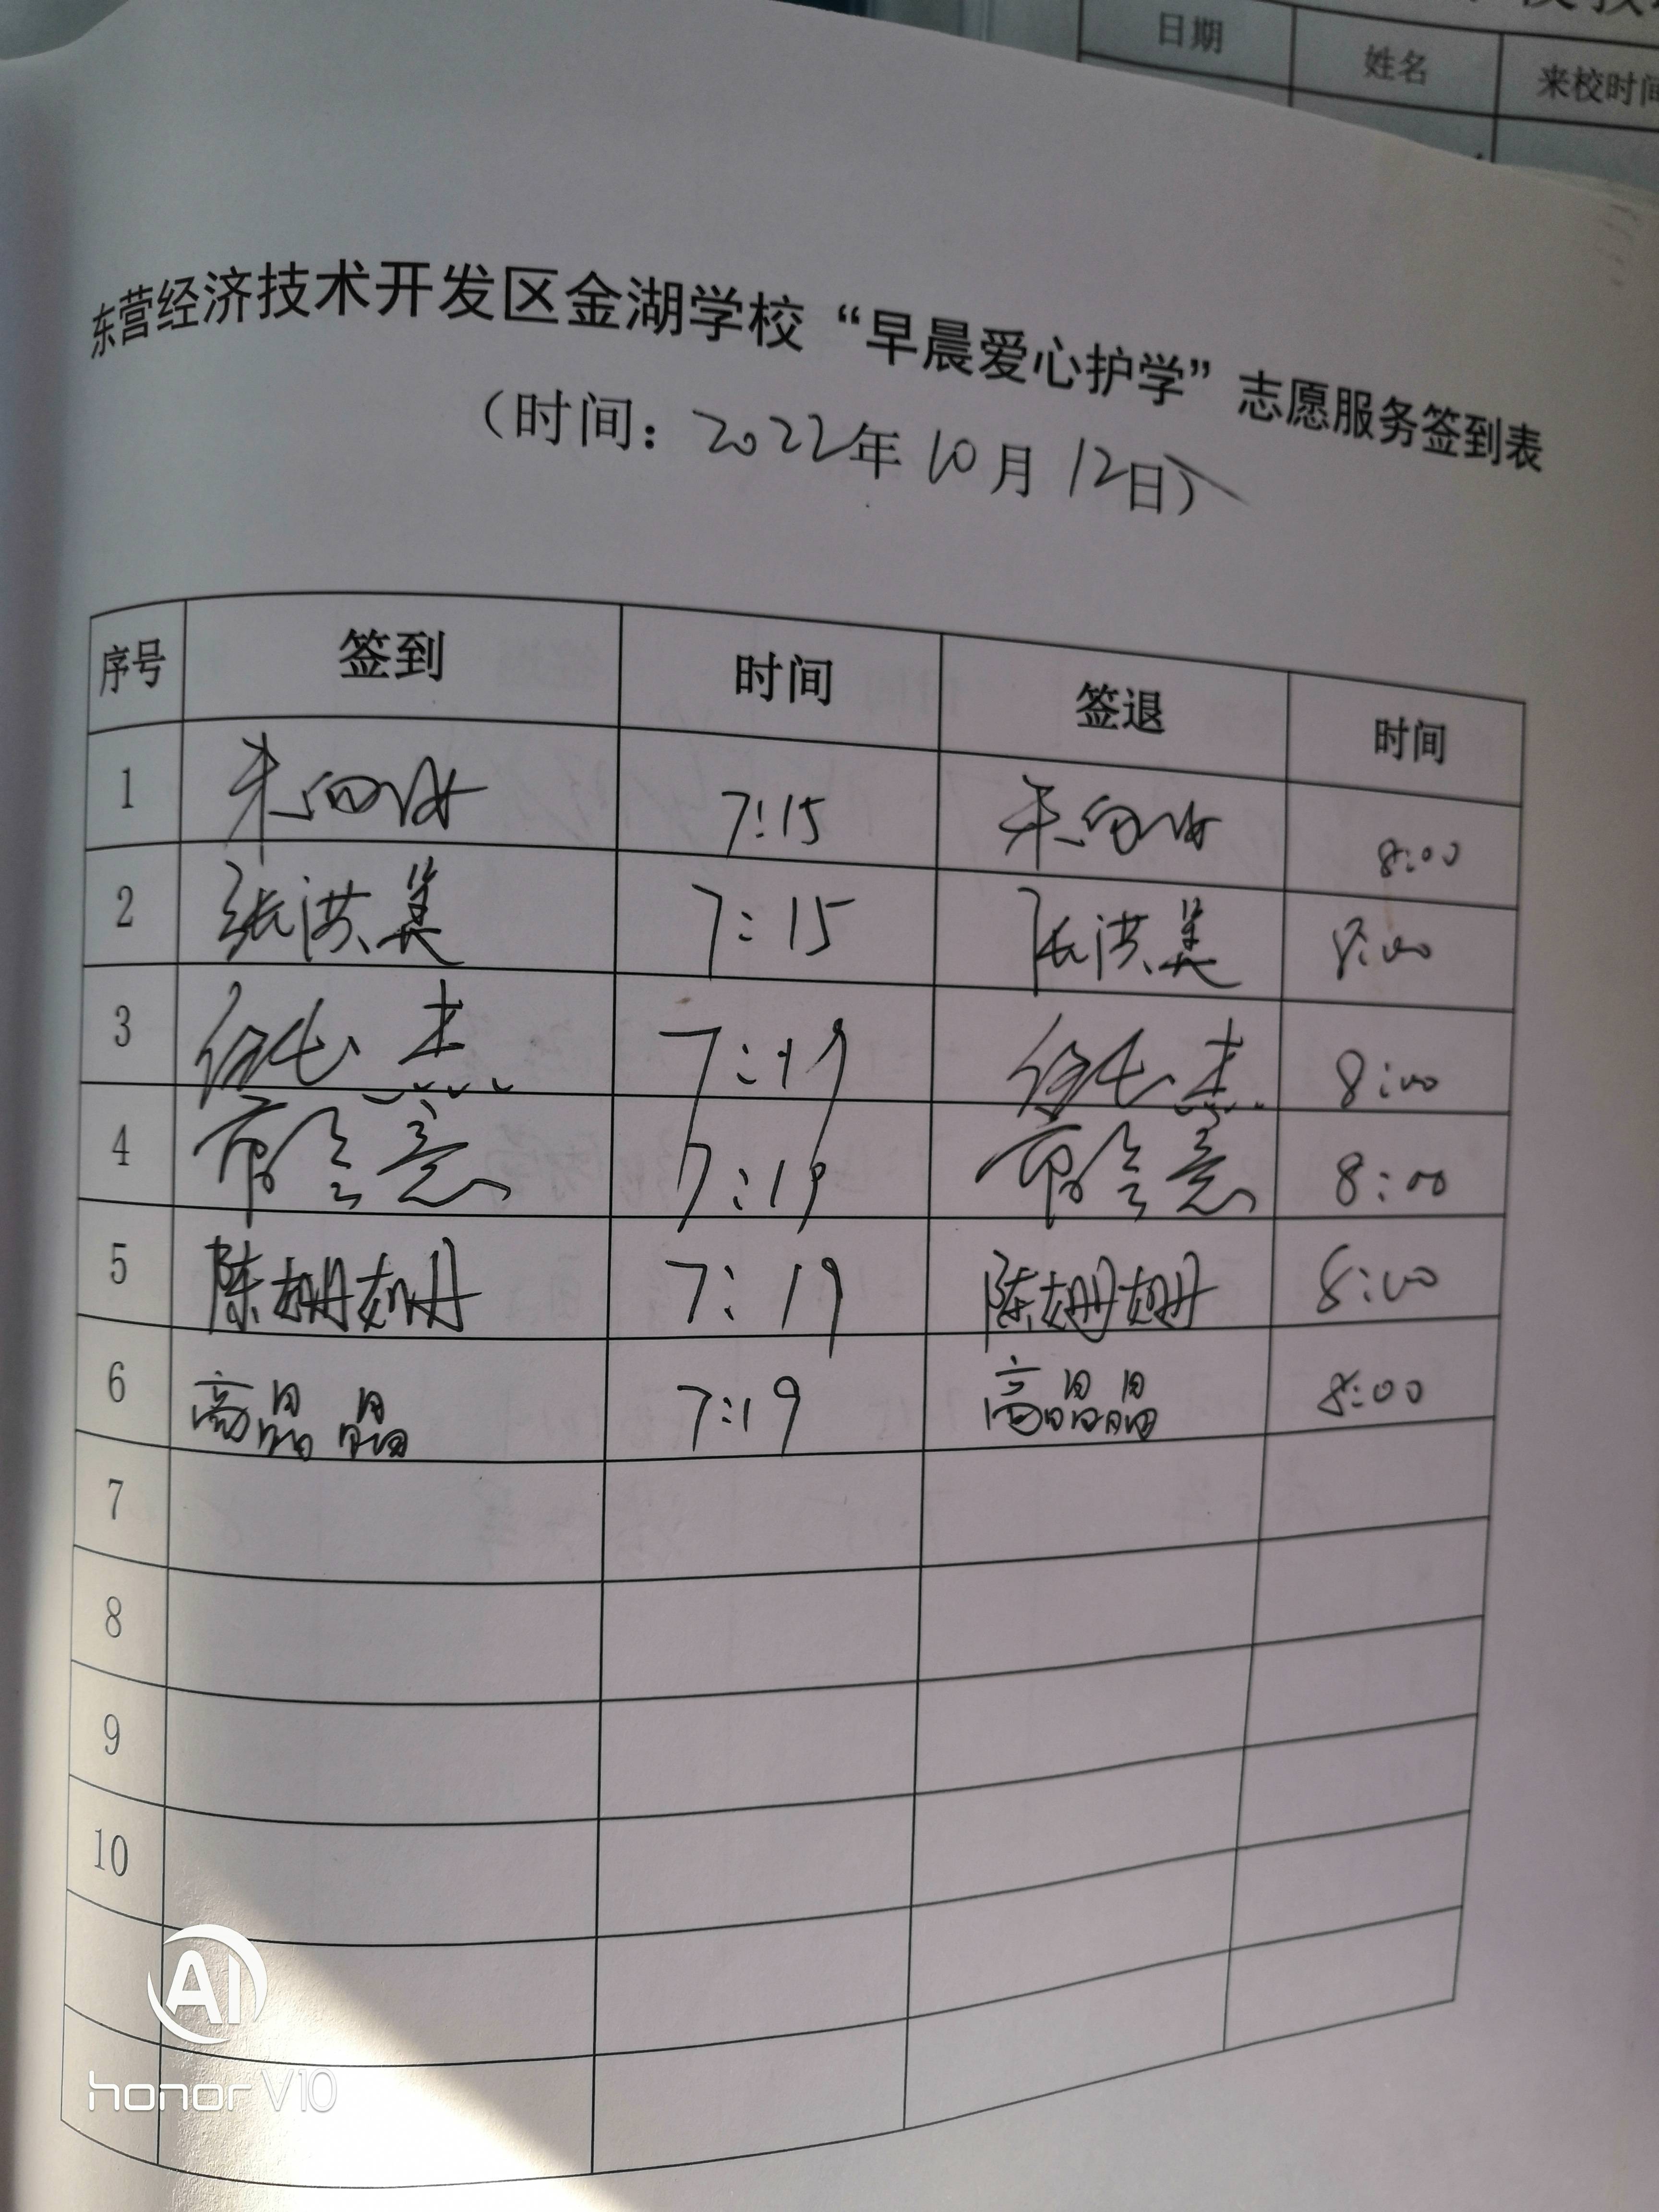 日期 姓名 来校时间
东营经济技术开发区金湖学校“早晨爱心护学”志愿服务签到表
（时间：2022年10月12日）
序号 签到 时间 签退 时间
1 7:15 8:00
2 张洪美 7:15 张洪美 8:00
3 7:19 8:00
4 7:19 8:00
5 陈姗姗 7:19 陈姗姗 8:00
6 高晶晶 7:19 高晶晶 8:00
7
8
9
10
AI
honor V10